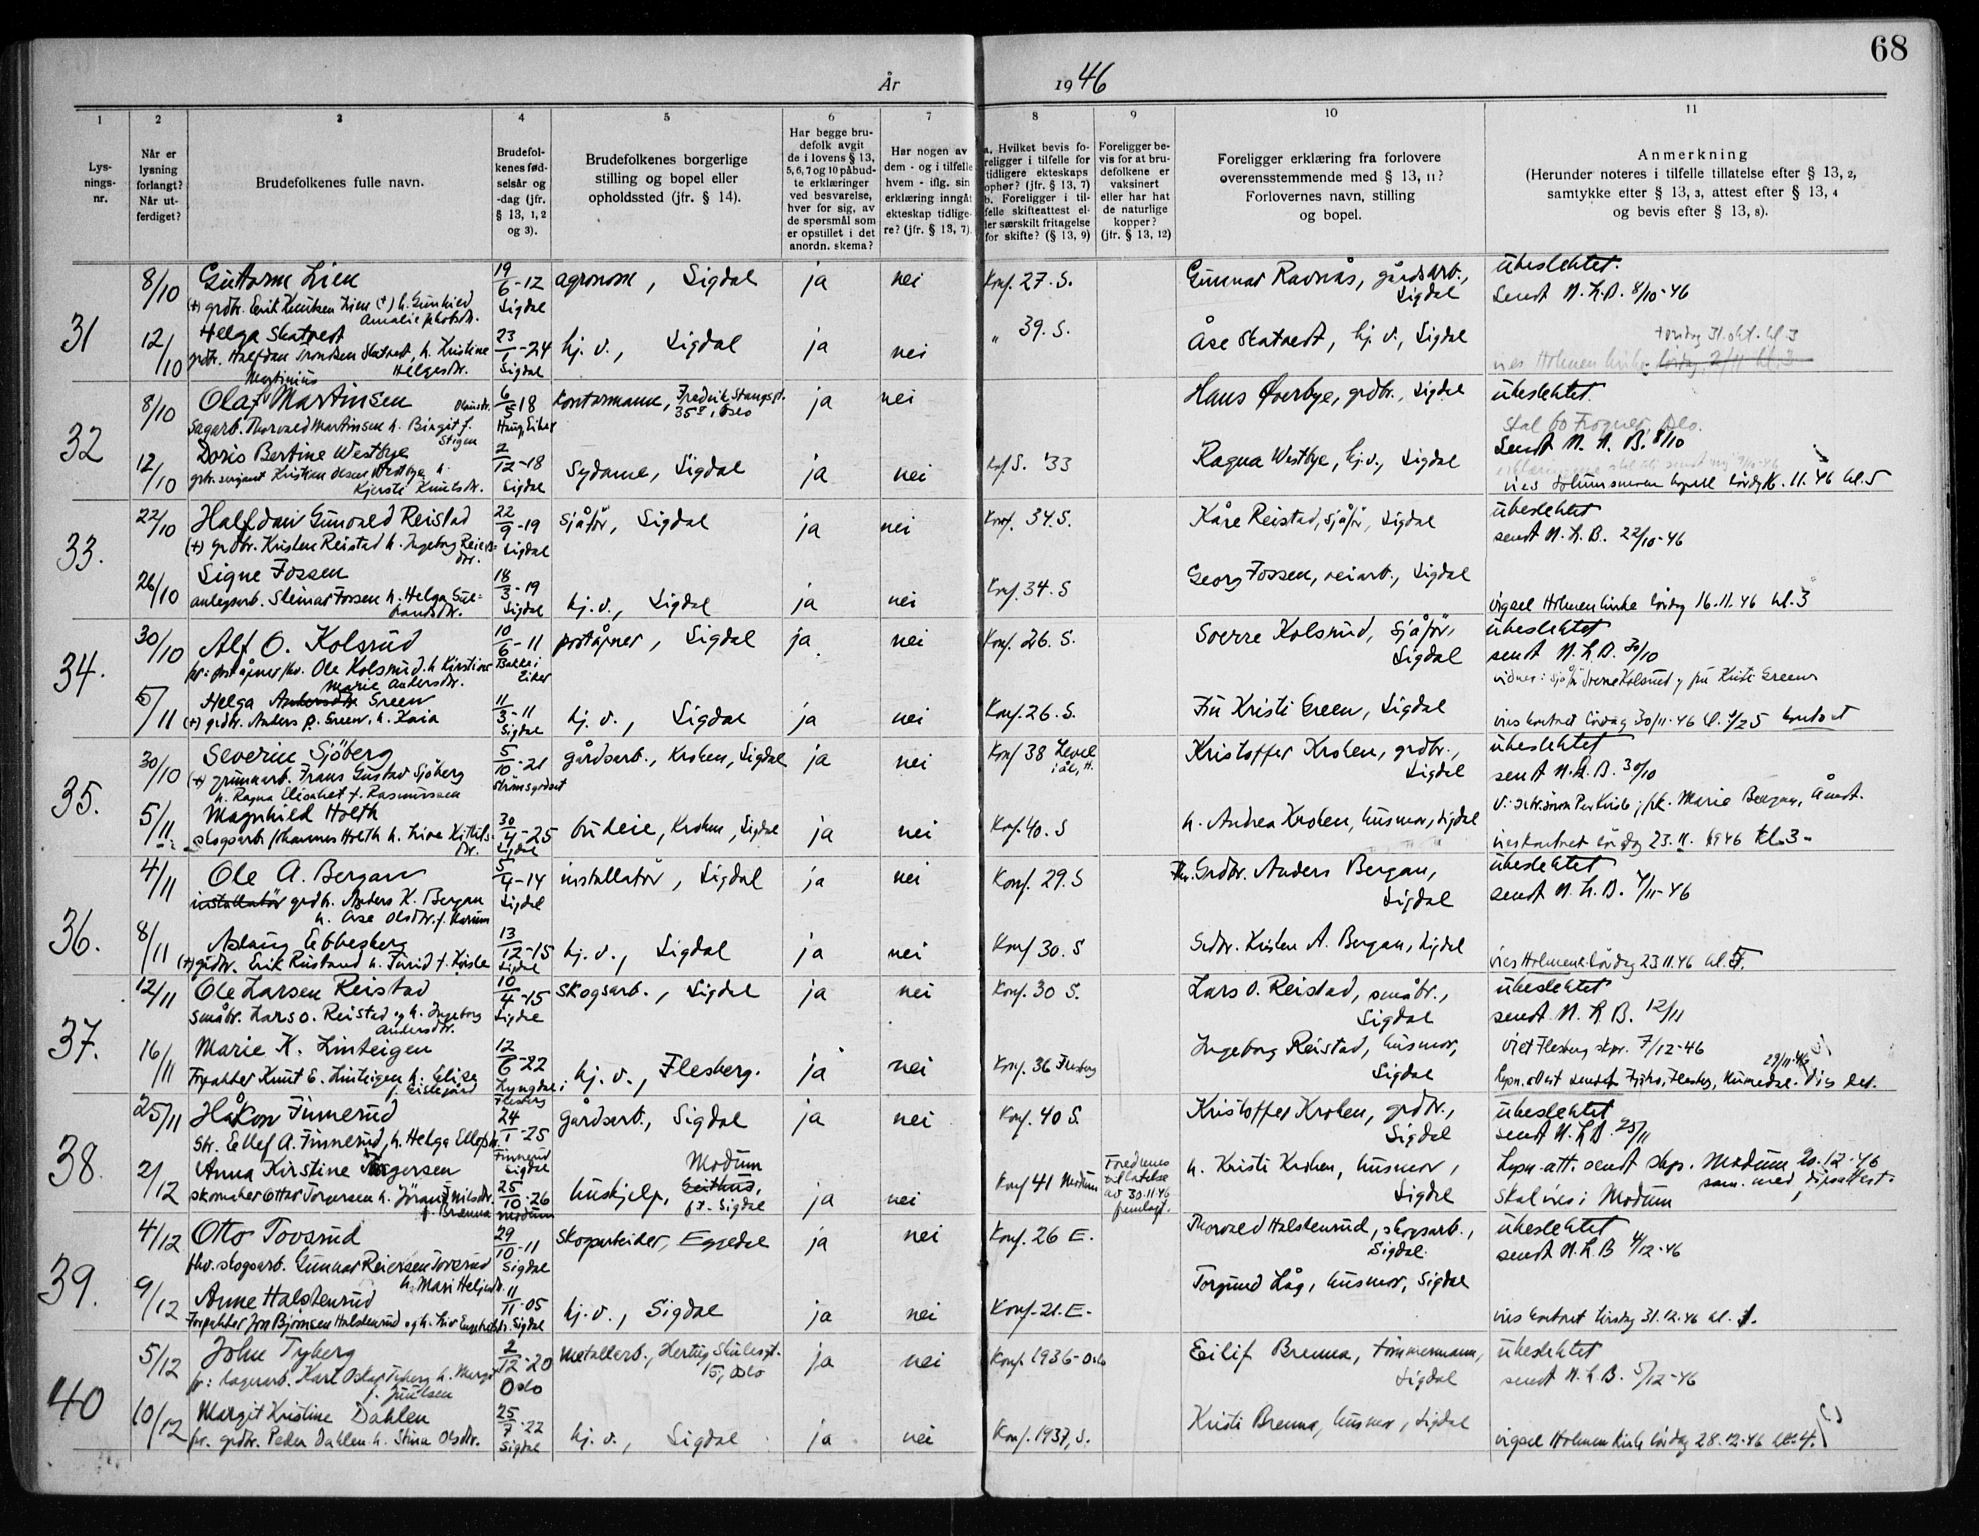 68
År 1946
1
2
3
4
5
6
7
8
9
10
11
Lys-
nings-
nr.
Når er
lysning
forlangt?
Når ut-
ferdiget?
Brudefolkenes fulle navn.
Brudefol-
kenes fød-
selsår og
-dag (jfr.
§ 13, 1, 2
og 3).
Brudefolkenes borgerlige
stilling og bopel eller
opholdssted (jfr. § 14).
Har begge bru-
defolk avgit
de i lovens § 13,
5, 6, 7 og 10 påbud-
te erklæringer
ved besvarelse,
hver for sig, av
de spørsmål som
er opstillet i det
anordn. skema?
Har nogen av
dem - og i tilfelle
hvem - iflg. sin
erklæring inngåt
ekteskap tidlige-
re? (jfr. § 13, 7).
a. Hvilket bevis fo-
religger i tilfelle for
tidligere ekteskaps
ophør? (jfr. § 13, 7)
b. Foreligger i til-
felle skifteattest el-
ler særskilt fritagelse
for skifte? (§ 13, 9)
Foreligger be-
vis for at bru-
defolkene er
vaksinert
eller har hat
de naturlige
kopper?
(jfr. § 13, 12)
Foreligger erklæring fra forlovere
overensstemmende med § 13, 11?
Forlovernes navn, stilling
og bopel.
Anmerkning
(Herunder noteres i tilfelle tillatelse efter § 13, 2,
samtykke efter § 13, 3, attest efter § 13, 4
og bevis efter § 13, 8).
31
8/10 Guttorm Lien 19/6-12 Sigdal agronom, Sigdal ja nei Konf. 27. S. Gunnar Ravnås, gårdsarb., Sigdal ubeslektet.
(+) grdbr. Erik Knutsen Lien (+) h. Gunhild
Sendt N.L.B. 8/10-46
12/10 Helga Skatvedt 23/1-24 Sigdal hj. v., Sigdal ja nei " 39. S. Åse Skatvedt, hj. v., Sigdal
grdbr. Halfdan Trondsen Skatvedt, h. Kristine Helgesdtr.
torsdag 31. okt. kl. 3
vies Holmen kirke lørdag 2/11 kl. 3
32
Martinius
8/10 Olaf Martinsen 6/5 18 kontormann, Fredrik Stangsgt. 35, Oslo ja nei Hans Øverbye, grdbr., Sigdal ubeslektet
sagarb. Thorvald Martinsen h. Birgit f. Stigen
Skal bo Frogner, Oslo.
Sendt N. L. B. 8/10
12/10 Doris Bertine Westbye 2/12-18 Sigdal Sydame, Sigdal ja nei Konf S. '33 Ragna Westbye, hj. v., Sigdal
Kjersti Knutsdtr.
kapell lørdag 16. 11. 46 kl. 5
33.
22/10 Halfdan Gunvald Reistad 22/9-19 Sigdal sjåfør, Sigdal ja nei Konf. 34. S. Kåre Reistad, sjåfør, Sigdal ubeslektet
(+) grdbr. Kristen Reistad h. Ingeborg Reiersdtr.
sendt N.L.B. 22/10-46
26/10 Signe Fossen 18/3-19 Sigdal hj. v., Sigdal ja nei Konf. 34. S Georg Fossen, veiarb., Sigdal
anlegsarb. Steinar Fossen h. Helga Gulbrandsdtr.
vigsel Holmen kirke lørdag 16.11.46 kl. 3
34.
30/10 Alf O. Kolsrud 10/6-11 Bakke i Eiker poståpner, Sigdal ja nei Konf. 26. S. Sverre Kolsrud, sjåfør, Sigdal ubeslektet
Ole Kolsrud h. Kirstine Marie Andersdtr.
sendt N.L.B. 30/10
vidner: sjåfør Sverre Kolsrud og fru Kristi Green
5/11 Helga Andersdtr Green 11/3-11 Sigdal hj. v., Sigdal ja nei Konf. 26. S. Fru Kristi Green, Sigdal
(+) grdbr. Anders P. Green, h. Kaia
vies kontoret lørdag 30/11-46
35.
30/10 Severin Sjöberg 5/10-21 Strømsgodset gårdsarb., Kroken, Sigdal ja nei Konf 38 Kristoffer Kroken, grdbr., Sigdal ubeslektet
(+) grunnarb. Frans Gustav Sjöberg
h. Ragna Elisabet f. Rasmussen
sendt N.L.B. 30/10
5/11 Magnhild Holth 30/4-25 Sigdal budeie, Kroken, Sigdal ja nei Konf. 40. S h. Andrea Kroken, husmor, Sigdal
skogsarb. Johannes Holth h. Live
vies kontoret lørdag 23. 11. 1946 kl. 3
36.
4/11 Ole A. Bergan 5/4-14 Sigdal installatør, Sigdal ja nei Konf. 29. S Grdbr. Anders Bergan, Sigdal ubeslektet
installatør grdbr. Anders K. Bergan
sendt N.L.B. 4/11-46
8/11 Aslaug Ebbesberg 13/12-15 Sigdal hj. v., Sigdal ja nei Konf. 30. S Grdbr. Kristen A. Bergan, Sigdal
(+) grdbr. Erik Rustand h. Turid
vies Holmen k. lørdag 23.11.46 kl. 5.
37.
12/11 Ole Larsen Reistad 10/4-15 Sigdal skogsarb., Sigdal ja nei Konf. 30 S. Lars O. Reistad, småbr., Sigdal ubeslektet
småbr. Lars O. Reistad og h. Ingeborg Andersdtr.
sendt N.L.B. 12/11
16/11 Marie K. Linteigen 12/6-22 Lyngdal i Flesberg hj. v., Flesberg. ja nei Konf. 36 Flesberg Ingeborg Reistad, husmor, Sigdal
Forpakter Knut E. Linteigen h. Elise
viet Flesberg 7/12-46
29/11-46
38.
25/11 Håkon Finnerud 24/1-25 Finnerud Sigdal gårdsarb., Sigdal ja nei Konf. 40 S. Kristoffer Kroken, grdbr., Sigdal ubeslektet
Ellef A. Finnerud, h. Helga
sendt N.L.B. 25/11
2/12 Anna Kirstine Torgersen 25/10-26 Modum hushjelp, Modum Geithus, Sigdal ja nei Konf 41 Modum h. Kristi Kroken, husmor, Sigdal
skomaker Ottar Torgersen h. Jöran Nilsdtr. f. Brenna
tillatelse av 30.11.46 fremlagt.
Modum 20.12-46
skal vies i Modum
39.
4/12 Otto Tovsrud 29/10-11 Sigdal skogsarbeider, Eggedal ja nei Konf. 26 E. Thorvald Halstenrud, skogsarb., Sigdal ubeslektet
fhv. skogsarb. Gunnar Reiersen Tovsrud
sendt N.L.B 4/12-46
9/12 Anne Halstenrud 11/11-05 Sigdal hj. v., Sigdal ja nei Konf. 21. E. Torgund Låg, husmor, Sigdal
Forpakter Jon Bjørnsen Halstenrud og h. Liv
vies kontoret tirsdag 31.12.46 kl. 1.
40
5/12 John Tyberg 2/12-20 Oslo metallarb., Hertug Skulesgt. 15, Oslo ja nei Konf. 1936-Oslo Eilif Brenna, tømmermann, Sigdal ubeslektet
lagerarb. Karl Oskar Tyberg h. Margit f. Juulsen
sendt N.L.B. 5/12-46
10/12 Margit Kristine Dahlen 25/7-22 Sigdal hj. v., Sigdal ja nei Konf. 1937, S. Kristi Brenna, husmor, Sigdal
grdbr. Peder Dahlen h. Stina Olsdtr.
vigsel Holmen kirke lørdag 28.12-46 kl. 4.